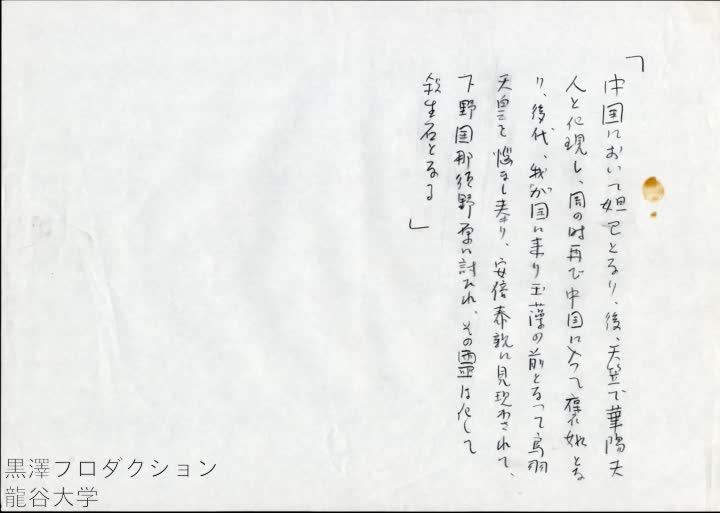 「中国において妲己となり、後、天竺で華陽夫
人と化現し、周の時再び中国に入って褒姒とな
り、後代、我が国に来り玉藻の前となって鳥羽
天皇を悩まし奉り、安倍泰親に見現わされて、
下野国那須野原に討たれ、その霊は化して
殺生石となる」
黒澤プロダクション
龍谷大学